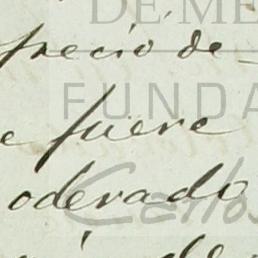 DE ME
precio de
FUNDA
e fuere
oderado
Carlos
de